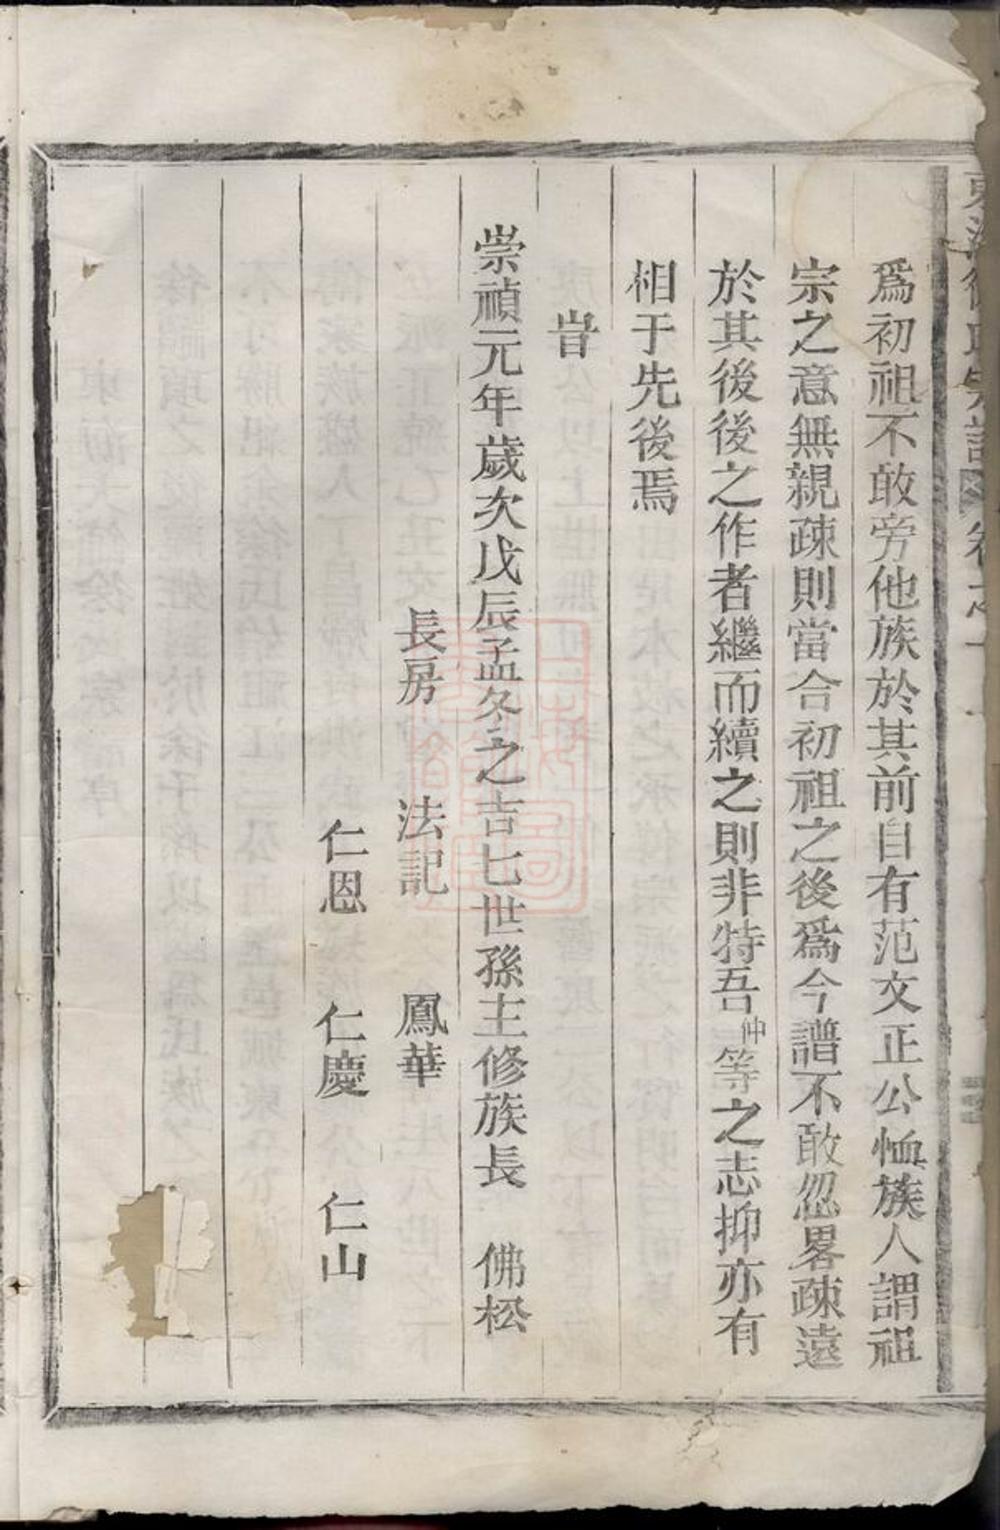 東海徐氏宗譜 卷之一
爲初祖不敢旁他族於其前自有范文正公恤族人謂祖
宗之意無親疎則當合初祖之後爲今譜不敢忽畧疎遠
於其後後之作者繼而續之則非特吾仲等之志抑亦有
相于先後焉
旹
崇禎元年歲次戊辰孟冬之吉七世孫主修族長 佛松
長房 法記 鳳華
仁恩 仁慶 仁山